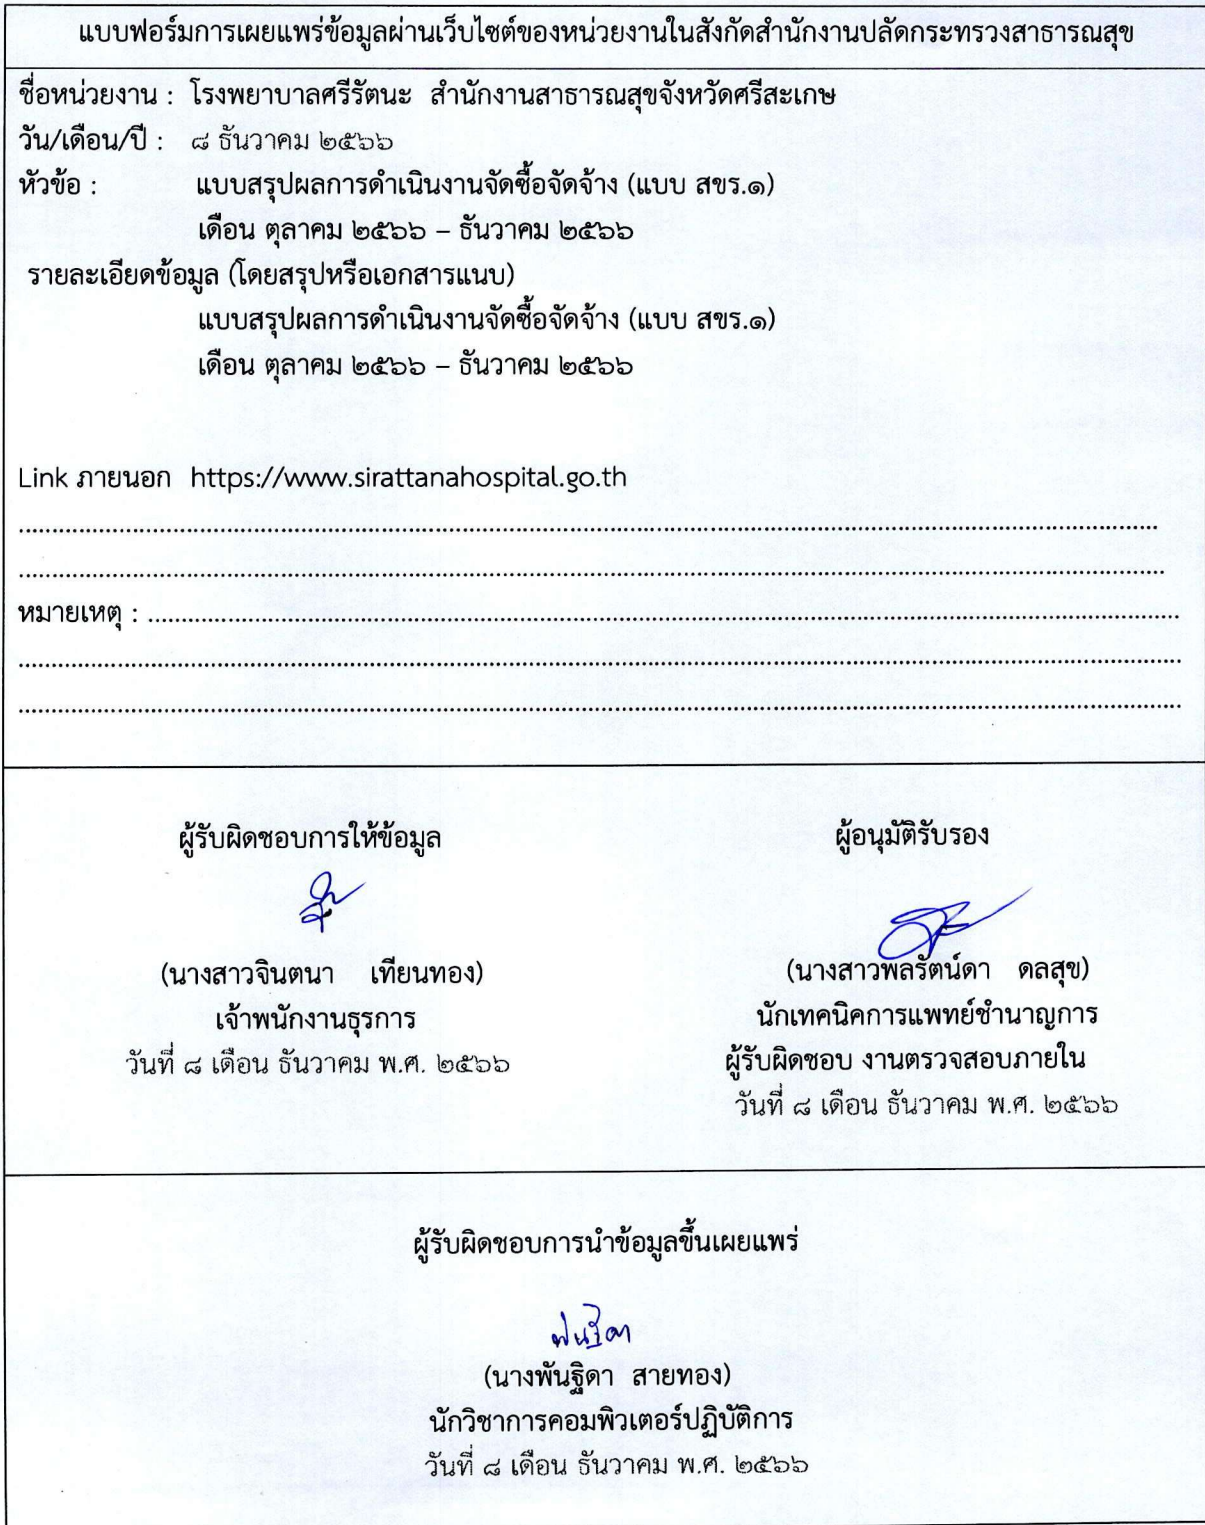 แบบฟอร์มการเผยแพร่ข้อมูลผ่านเว็บไซต์ของหน่วยงานในสังกัดสำนักงานปลัดกระทรวงสาธารณสุข
ชื่อหน่วยงาน : โรงพยาบาลศรีรัตนะ สำนักงานสาธารณสุขจังหวัดศรีสะเกษ
วัน/เดือน/ปี : ๘ ธันวาคม ๒๕๖๖
หัวข้อ : แบบสรุปผลการดำเนินงานจัดซื้อจัดจ้าง (แบบ สขร.๑)
เดือน ตุลาคม ๒๕๖๖ – ธันวาคม ๒๕๖๖
รายละเอียดข้อมูล (โดยสรุปหรือเอกสารแนบ)
แบบสรุปผลการดำเนินงานจัดซื้อจัดจ้าง (แบบ สขร.๑)
เดือน ตุลาคม ๒๕๖๖ – ธันวาคม ๒๕๖๖
Link ภายนอก https://www.sirattanahospital.go.th
หมายเหตุ :
ผู้รับผิดชอบการให้ข้อมูล
(นางสาวจินตนา เทียนทอง)
เจ้าพนักงานธุรการ
วันที่ ๘ เดือน ธันวาคม พ.ศ. ๒๕๖๖
ผู้อนุมัติรับรอง
(นางสาวพลรัตน์ดา ดลสุข)
นักเทคนิคการแพทย์ชำนาญการ
ผู้รับผิดชอบ งานตรวจสอบภายใน
วันที่ ๘ เดือน ธันวาคม พ.ศ. ๒๕๖๖
ผู้รับผิดชอบการนำข้อมูลขึ้นเผยแพร่
พันฐิดา
(นางพันฐิดา สายทอง)
นักวิชาการคอมพิวเตอร์ปฏิบัติการ
วันที่ ๘ เดือน ธันวาคม พ.ศ. ๒๕๖๖